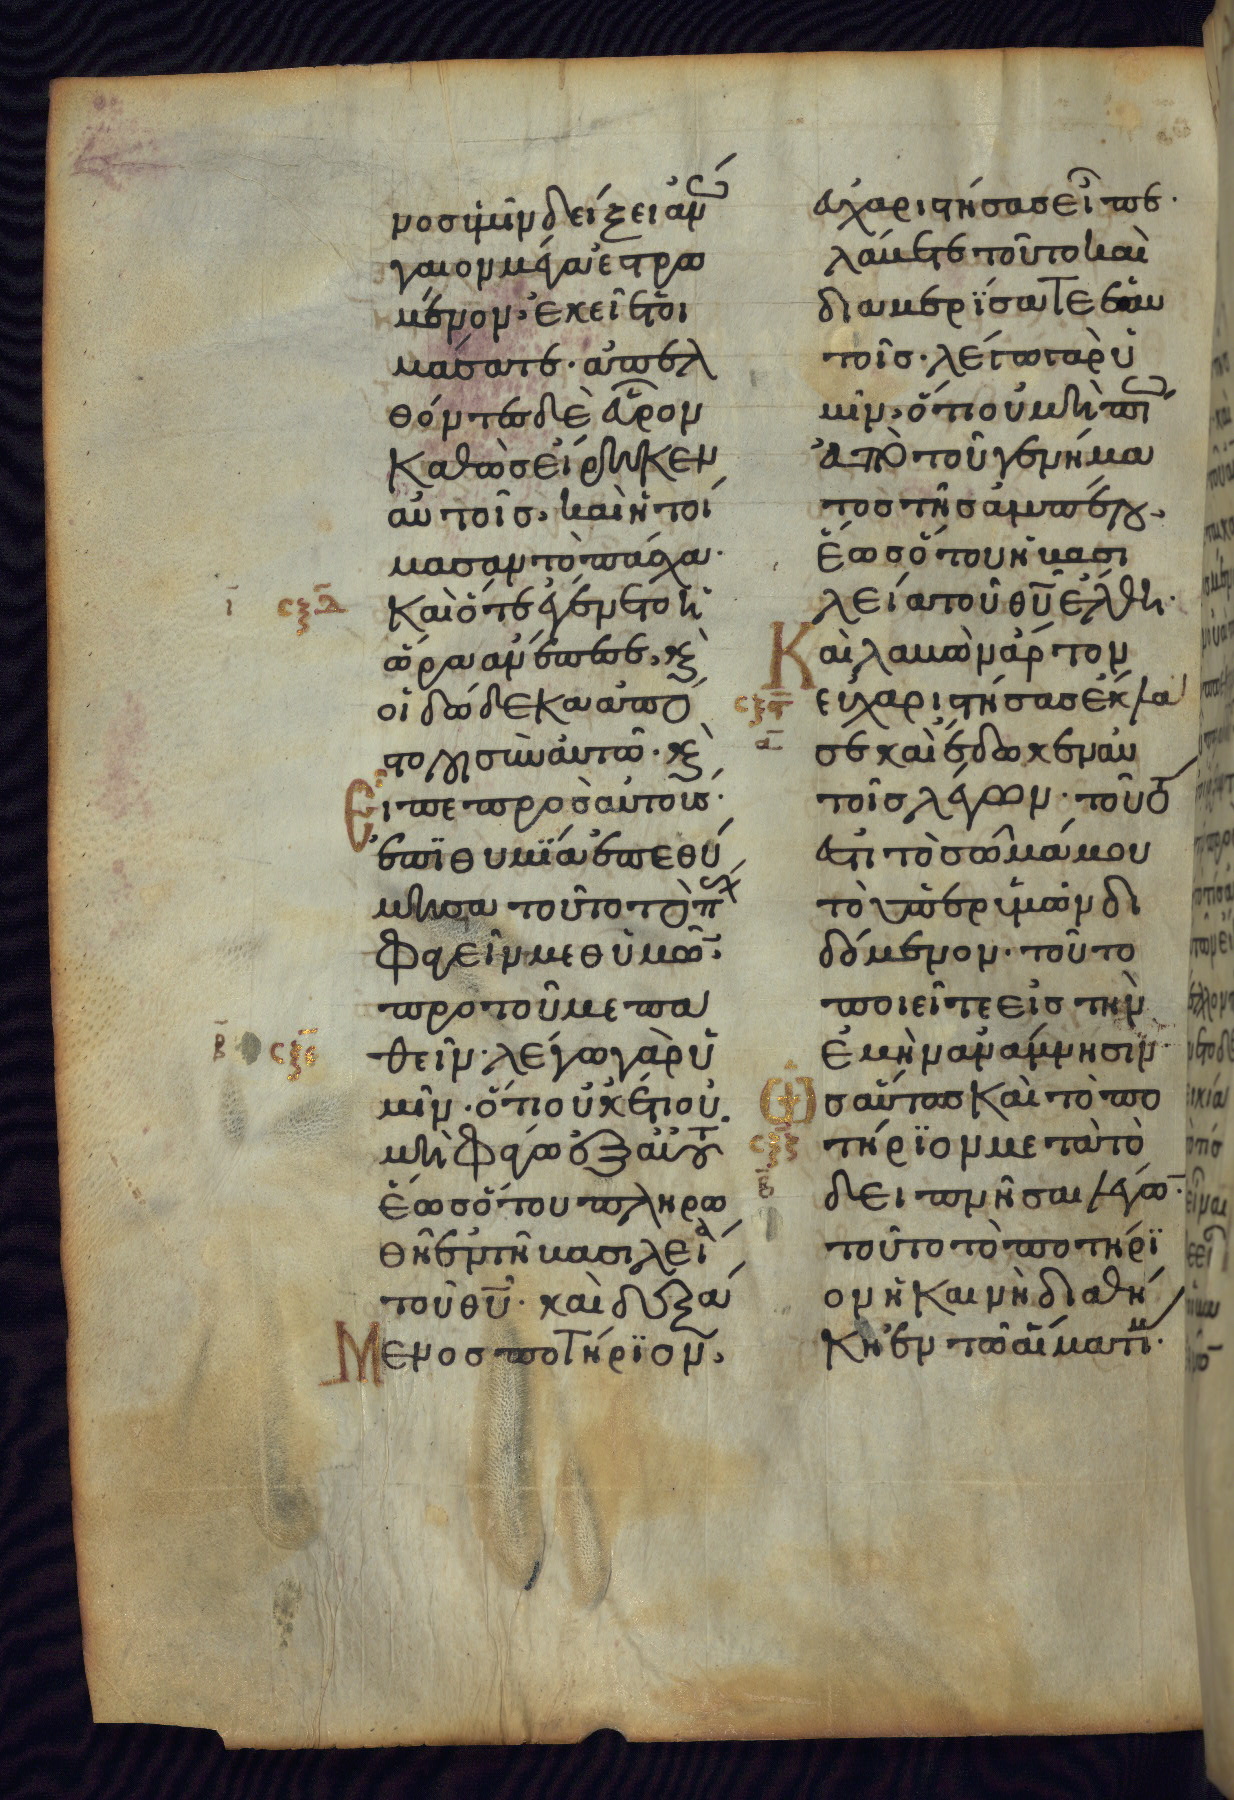 νοσ ὑμῖν δείξει ἀνώ
γαιον μέγα ἐστρω
μένον· ἐκεῖ ἑτοι
μάσατε· ἀπελ
θόντεσ δὲ εὗρον
καθὼσ εἴρηκεν
αὐτοῖσ· καὶ ἡτοί
μασαν τὸ πάσχα·
ι̅ σξδ̅ Καὶ ὅτε ἐγένετο ἡ
ὥρα ἀνέπεσε· κ̀
οἱ δώδεκα ἀπό
στολοι σὺν αὐτῶ· κ̀
Εἶπε προσ αὐτούσ·
ἐπϊθυμϊά ἐπεθύ
μησα τοῦτο τὸ πσχ
φαγεῖν μεθ ὑμῶ̅·
προ τοῦ με πα
β̅ σξε̅ θεῖν· λέγω γὰρ ὑ
μῖν· ὅτι οὐκέτι οὐ
μὴ φάγω ἐξ αὐτοῦ
ἕωσ ὅτου πληρω
θῆ ἐν τῆ βασιλεία
τοῦ θ̅υ̅· καὶ δεξά
Μενοσ ποτήρϊον·
εὐχαριστήσασ εἶπε·
λάβετε τοῦτο καὶ
διαμερϊσατε ἑαυ
τοῖσ· λέγω γαρ ὑ
μῖν· ὅτι οὐ μὴ πίω
ἀπὸ τοῦ γενήμα
τοσ τῆσ ἀμπέλου·
ἕωσ ὅτου ἡ βασι
λεία τοῦ θ̅υ̅ ἔλθη·
Καὶ λαβὼν ἄρτον
σξϛ̅ εὐχαριστήσασ ἔκλα
α̅ σε καὶ ἔδωκεν αυ
τοῖσ λέγων· τοῦτό
ἐστι τὸ σῶμά μου
τὸ ὑπὲρ ὑμῶν δι
δόμενον· τοῦτο
ποιεῖτε εἰσ τὴν
ἐμὴν ἀνάμνησιν
Ὡσαύτωσ καὶ τὸ πο
σξζ̅ τήρϊον μετὰ τὸ
β̅ δειπνῆσαι λέγω̅·
τοῦτο τὸ ποτήρϊ
ον ἡ καινὴ διαθή
κη ἐν τῶ αἵματί·